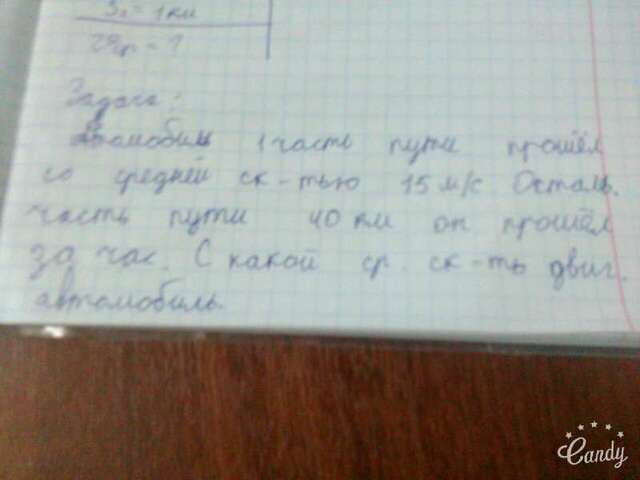 S₁ = 1 км
υср = ?
Задача:
Автомобиль 1 часть пути прошёл
со средней ск-тью 15 м/с Осталь.
часть пути 40 км он прошёл
за час. С какой ср. ск-ть двиг.
автомобиль.
Candy